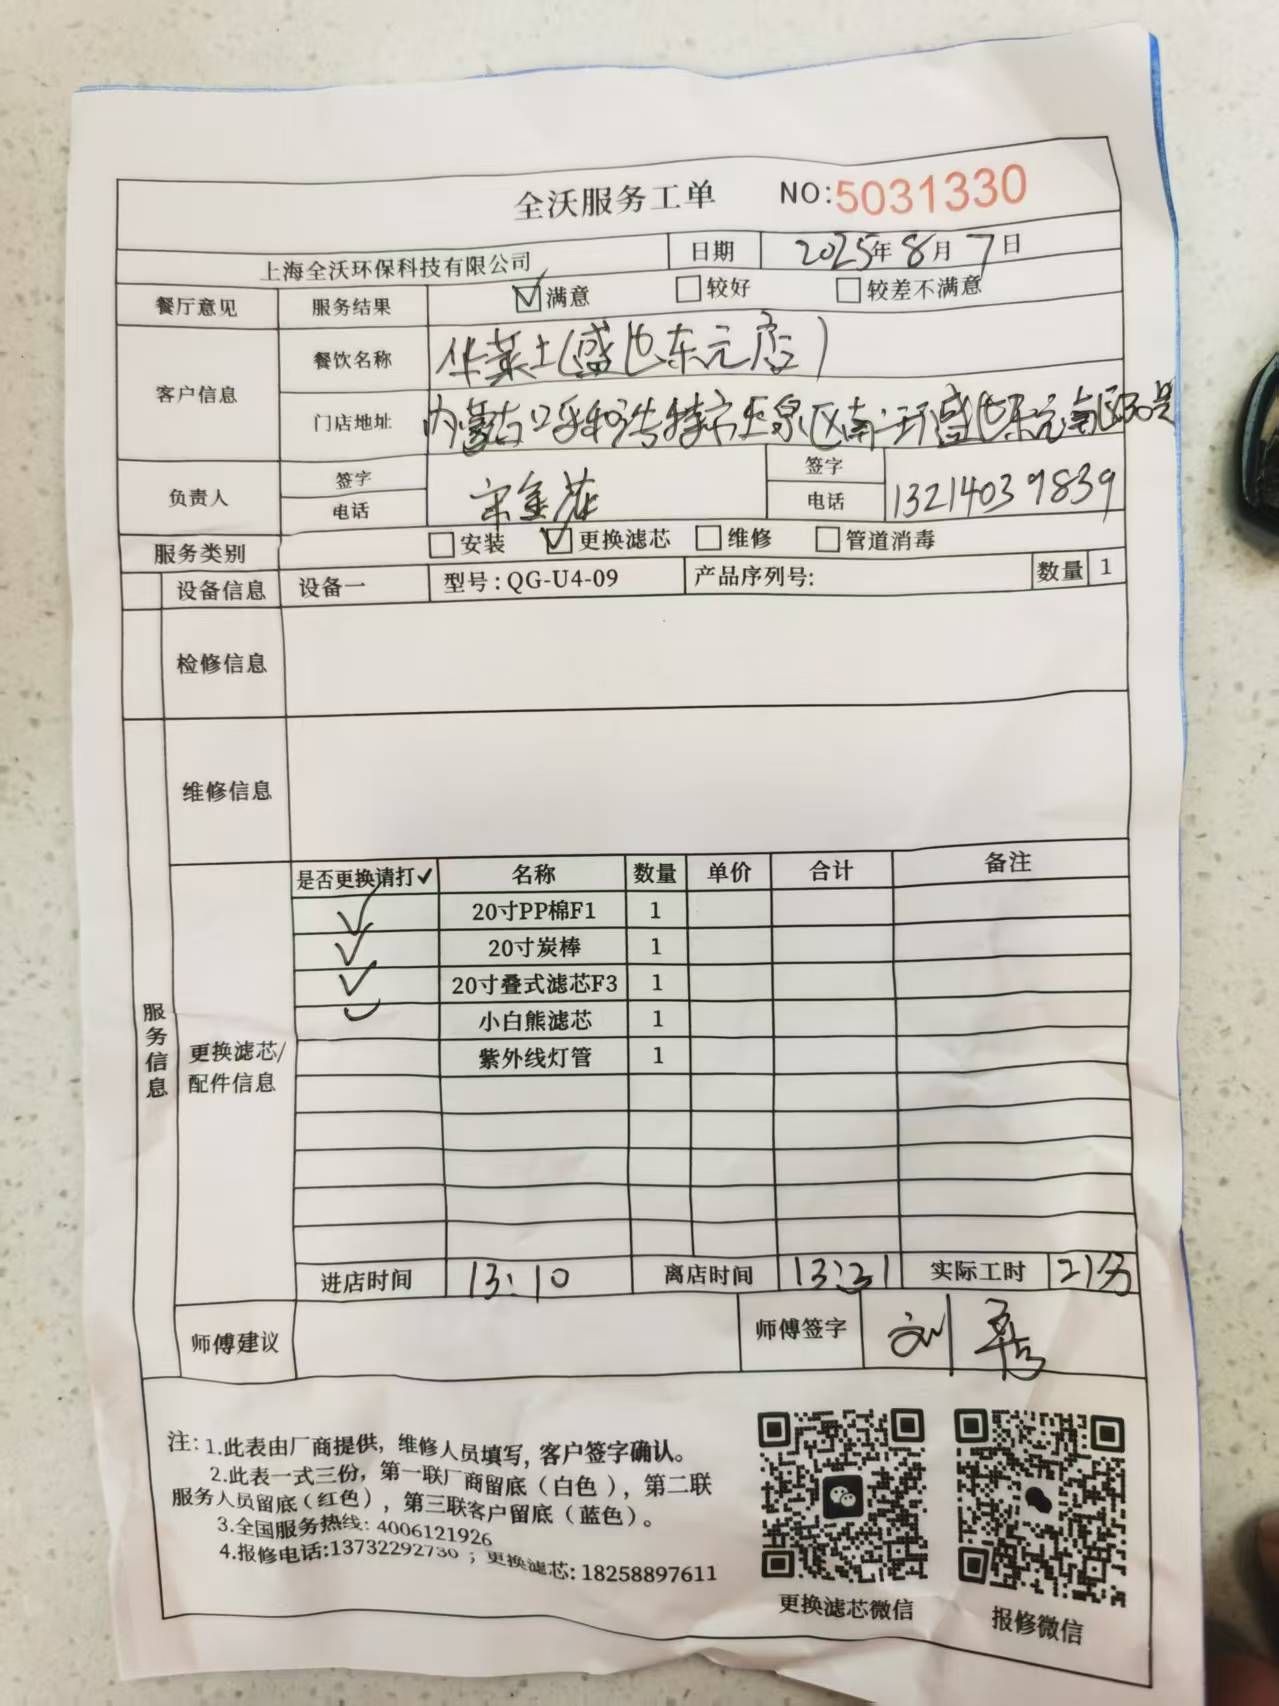 全沃服务工单 NO:5031330
上海全沃环保科技有限公司 日期 2025年8月7日
餐厅意见 服务结果 满意 较好 较差不满意
客户信息 餐饮名称 华莱士(盛也东元店)
门店地址 内蒙古呼和浩特市玉泉区南二环盛也东元南区30号
负责人 签字 签字
电话 电话 13214039839
服务类别 安装 更换滤芯 维修 管道消毒
设备信息 设备一 型号:QG-U4-09 产品序列号: 数量 1
检修信息
维修信息
服务信息
更换滤芯/配件信息
是否更换请打✓ 名称 数量 单价 合计 备注
✓ 20寸PP棉F1 1
✓ 20寸炭棒 1
✓ 20寸叠式滤芯F3 1
✓ 小白熊滤芯 1
紫外线灯管 1
进店时间 13:10 离店时间 13:31 实际工时 21分
师傅建议 师傅签字 刘
注:1.此表由厂商提供,维修人员填写,客户签字确认。
2.此表一式三份,第一联厂商留底(白色),第二联
服务人员留底(红色),第三联客户留底(蓝色)。
3.全国服务热线:4006121926
4.报修电话:13732292730;更换滤芯:18258897611
更换滤芯微信 报修微信